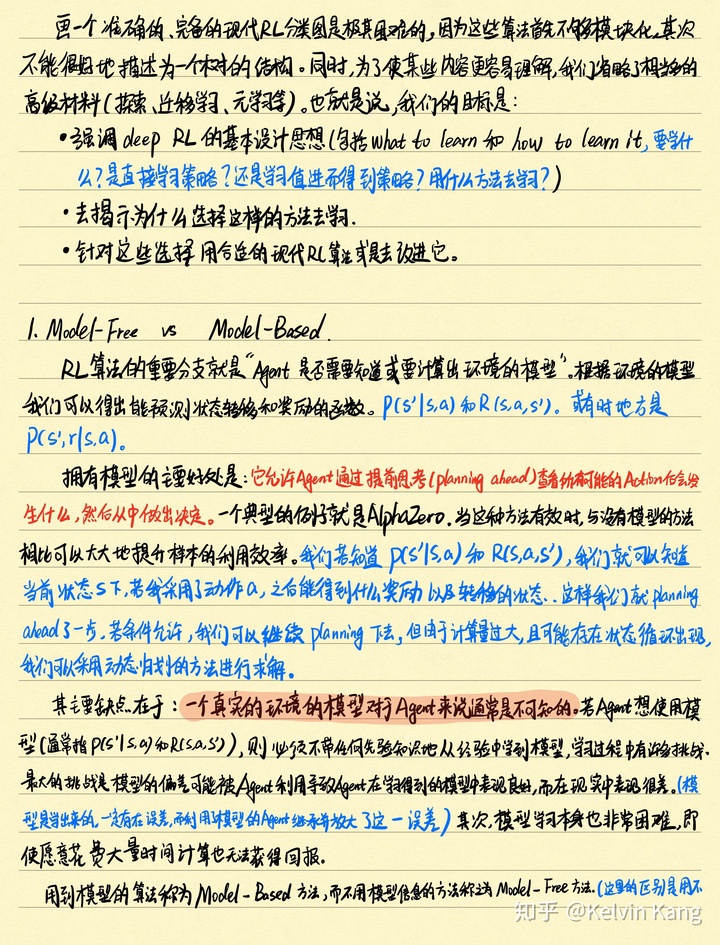 画一个准确的、完备的现代RL分类图是极其困难的,因为这些算法首先不够模块化,其次
不能很好地描述为一个树的结构。同时,为了使某些内容更容易理解,我们省略了相当多的
高级材料(探索、迁移学习、元学习等)。也就是说,我们的目标是:
•强调deep RL的基本设计思想(包括what to learn和how to learn it,要学什
么?是直接学习策略?还是学习值进而得到策略?用什么方法去学习?)
•去揭示为什么选择这样的方法去学习.
•针对这些选择用合适的现代RL算法或是去改进它。
1. Model-Free vs Model-Based.
RL算法的重要分支就是“Agent是否需要知道或要计算出环境的模型”。根据环境的模型
我们可以得出能预测状态转移和奖励的函数。P(s'|s,a)和R(s,a,s')。或有时地方是
P(s',r|s,a)。
拥有模型的主要好处是:它允许Agent通过提前思考(planning ahead)查看所有可能的Action后会发
生什么,然后从中做出决定。一个典型的例子就是AlphaZero.当这种方法有效时,与没有模型的方法
相比可以大大地提升样本的利用效率。我们若知道p(s'|s,a)和R(s,a,s'),我们就可以知道
当前状态s下,若我采用了动作a,之后能得到什么奖励以及转移的状态..这样我们就planning
ahead了一步.若条件允许,我们可以继续planning下去,但由于计算量过大,且可能存在状态循环出现,
我们可以采用动态规划的方法进行求解。
其主要缺点在于:一个真实的环境的模型对于Agent来说通常是不可知的.若Agent想使用模
型(通常指p(s'|s,a)和R(s,a,s')),则必须不带任何先验知识地从经验中学到模型,学习过程中有许多挑战.
最大的挑战是模型的偏差可能被Agent利用导致Agent在学习得到的模型中表现良好,而在现实中表现很差。(模
型是学出来的,一定存在误差,而利用了模型的Agent继承并放大了这一误差)其次,模型学习本身也非常困难,即
使愿意花费大量时间计算也无法获得回报。
用到模型的算法称为Model-Based方法,而不用模型信息的方法称之为Model-Free方法.(这里的区别是用不
知乎 @Kelvin Kang